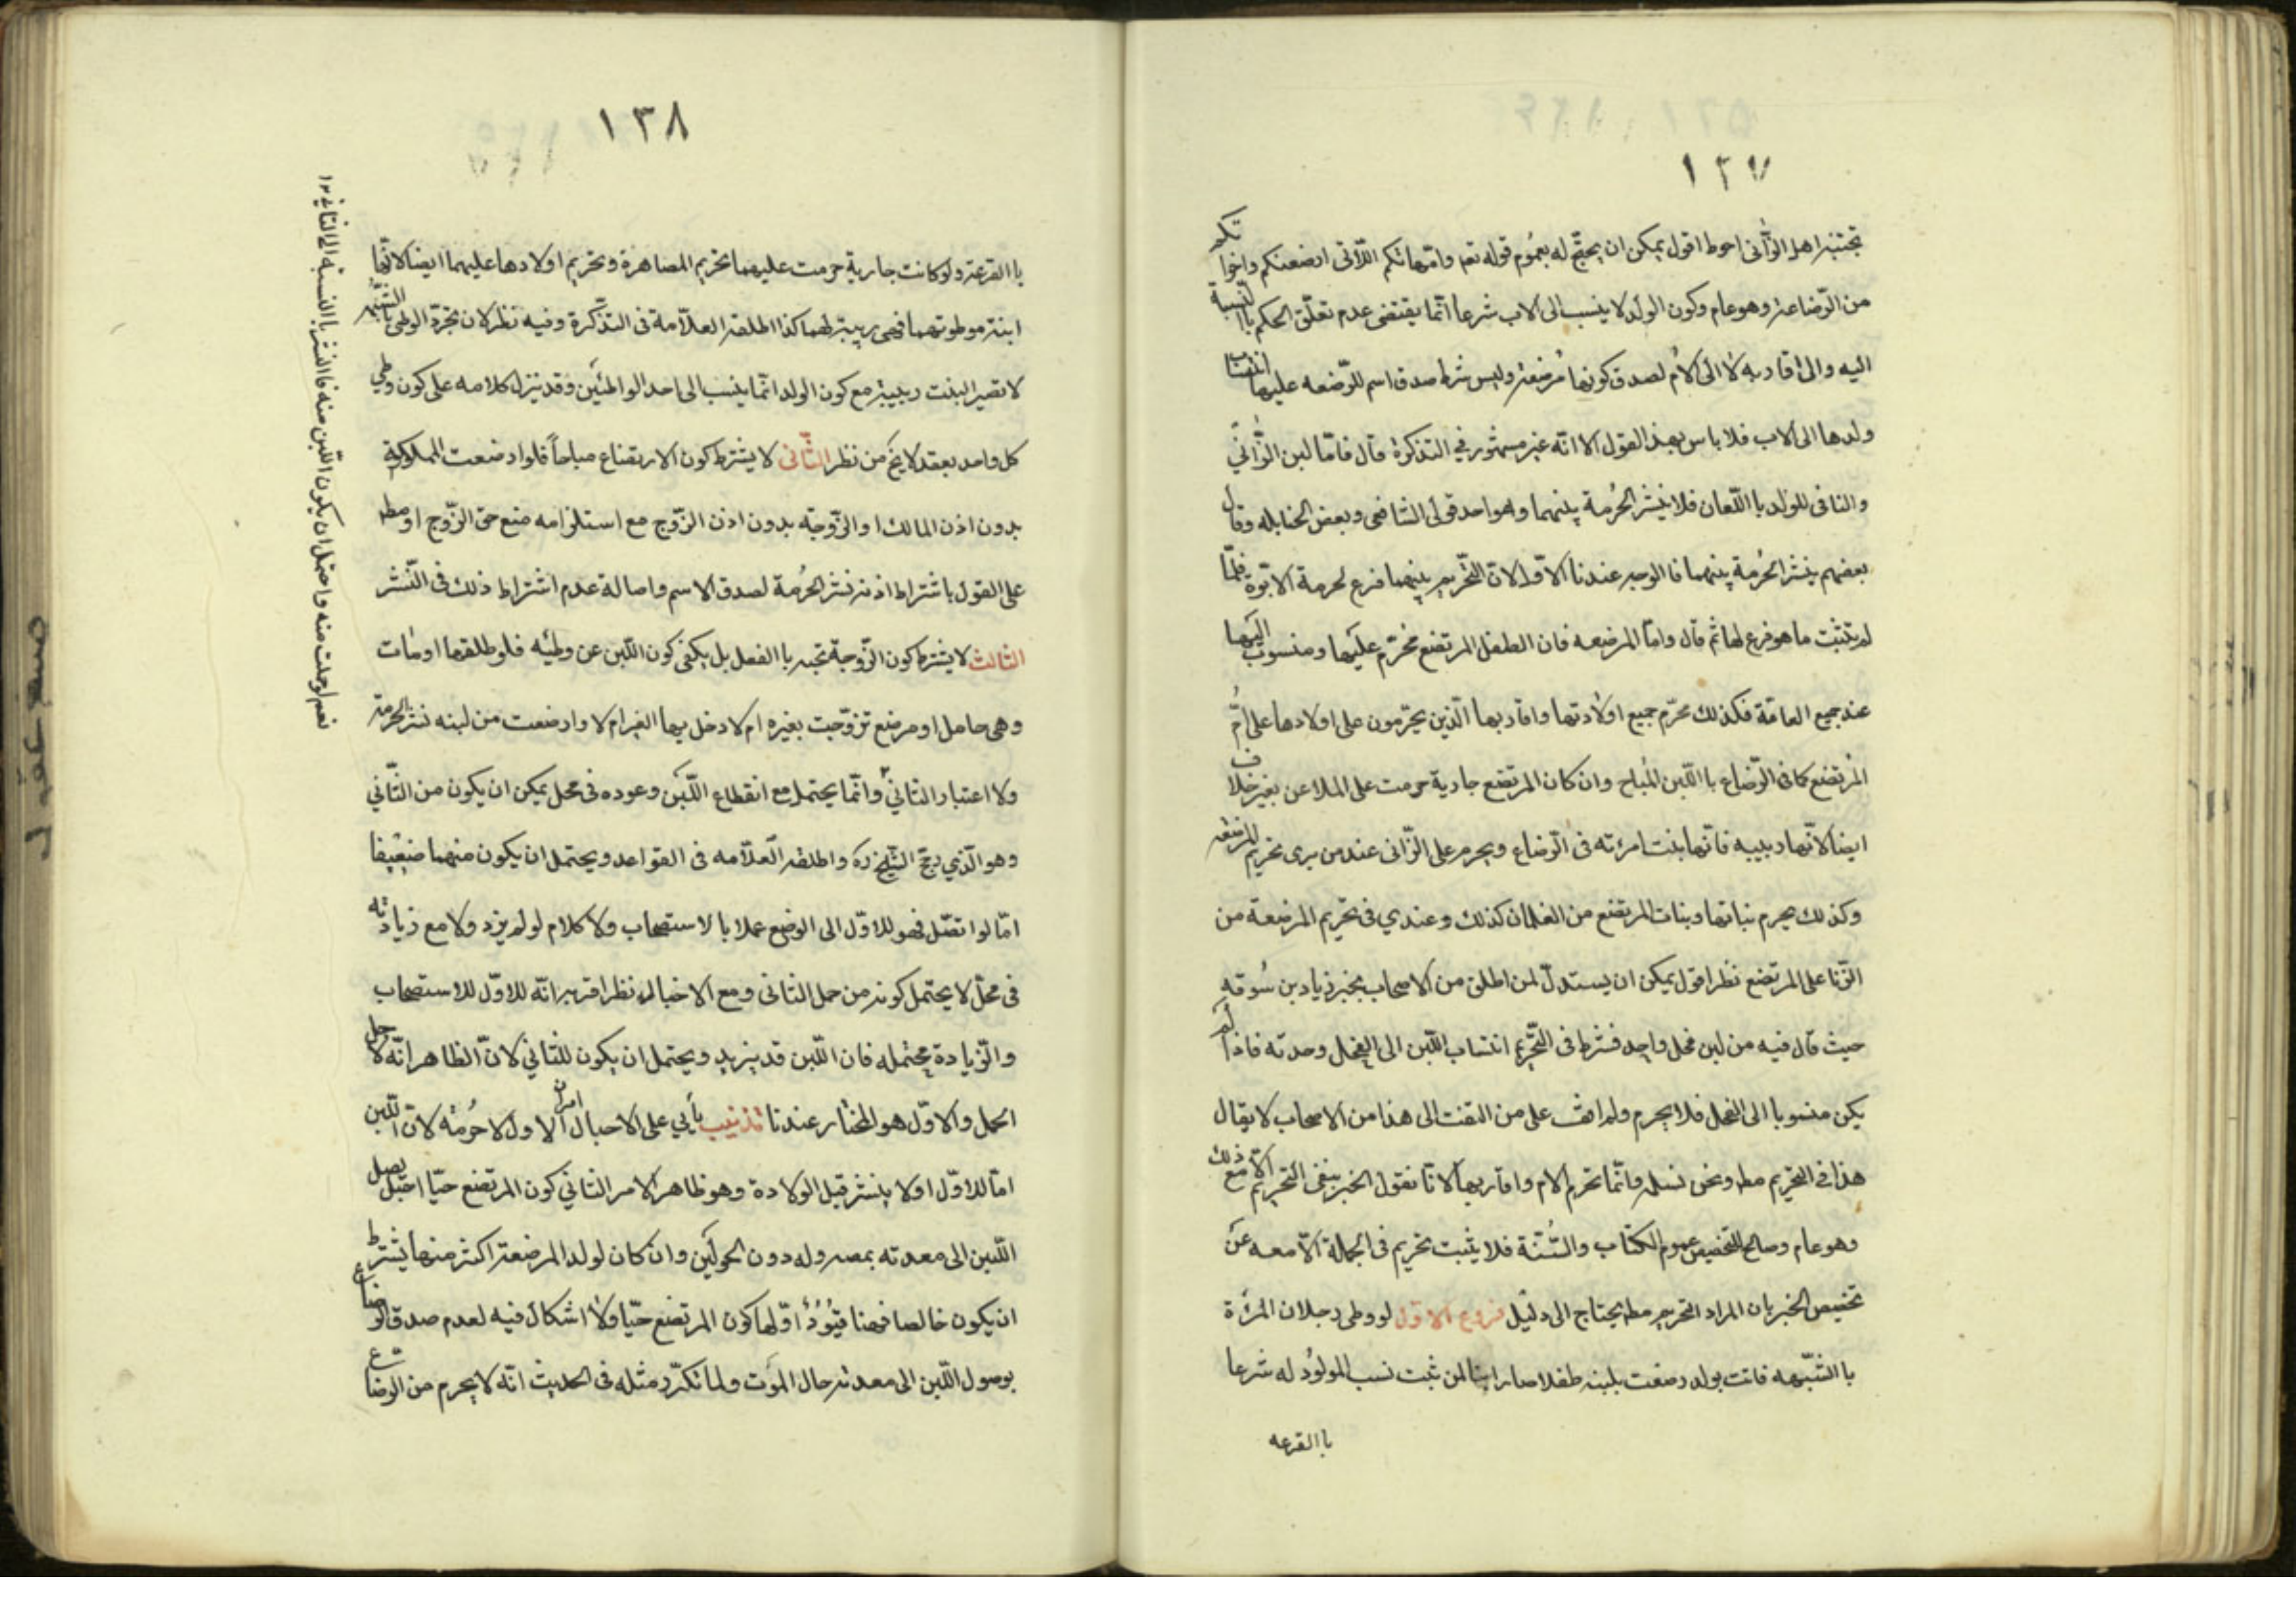 ١٣٧
تجتنبه اهل الزّانى احوط اقول يمكن ان يحتجّ له بعموم قوله تعم وامّهاتكم اللّاتى ارضعنكم واخواتكم
من الرّضاعة وهو عام وكون الولد لا ينسب الى الاب شرعا انّما يقتضى عدم تعلّق الحكم باالنّسبة
اليه والى اقاربه لا الى الامّ لصدق كونها مُرضعة وليس شرط صدق اسم المرّضعه عليها انتساب
ولدها الى الاب فلا باس بهذ القول الا انّه غير مسثور في التذكرة قال فامّا لبن الزّانى
والنافى للولد باالّلعان فلا ينشر الحُرمة بينهما وهو احد قولى الشافعى وبعض الحنابله وقال
بعضهم ينشر الحُرمة بينهما فا الوجه عندنا الاوّل لانّ التّحريم بينهما فرع لحرمة الابوّة فلمّا
لم يتثبت ما هو فرع لها ثمّ قال وامّا المرضعه فان الطفل المرتضع محرّم عليها ومنسوب اليها
عند جميع العامّة فكذلك محرّم جميع اولادتها واقاربها الّذين يحرّمون على اولادها على امّ
المرتضع كما فى الرّضاع باالّلبن المُباح وان كان المرتضع جارية حرمت على الملاعن بغير خلاف
ايضا لانّها ربيبه فانّها بنت امرئته فى الرّضاع ويحرم على الزّانى عند من يرى تحريم المرضعة
وكذلك يحرم بناتها وبنات المرتضع من الغلمان كذلك وعندي فى تحريم المرضعة من
الزّنا على المرتضع نظر اقول يمكن ان يستدلّ لمن اطلق من الاصحاب بخبر زيادبن سُوقه
حيث قال فيه من لبن فحل واحد فشرط فى التّحريم انتساب اللّبن الى الفحل وحدته فاذا لم
يكن منسوبا الى الفحل فلا يحرم ولم اقف على من التفت الى هذا من الاصحاب لا يقال
هذا فى التحريم مط ونحن نسلمه وانّما تحريم الام واقاربها لانّا نقول الخبر ينفى التّحريم الّا مع ذلك
وهو عام وصالح لتخصيص عموم الكتاب والسُّنّة فلا يثبت تحريم فى الجملة الّا معه عن
تخصيص الخبر بان المراد التحريم مط يحتاج الى دليل فروع الاوّل لو وطى رجلان المرئة
باالشّبهه فاتت بولد رضعت بلبنه طفلا صار ابنا لمن ثبت نسب المولوُد له شرعا
باالقرعه
١٣٨
باالقرعة ولو كانت جارية حرمت عليهما تحريم المصاهرة وتحريم اولادها عليهما ايضا لانّها
ابنة موطوئتهما فهى ربيبة لهما كذا اطلقه العلّامة فى التذكّرة وفيه نظر لان بمجرّد الوطى باالشّبهه
لا تصير البنت ربيبة مع كون الولد انّما ينسب الى احد الواطئين وقد ينزل كلامه على كون وطى
كل واحد بعقد لا يخ من نظر الثّانى لا يشترط كون الارتضاع مباحاً فلو ارضعت المملوكة
بدون اذن المالك او الزّوجة بدون اذن الزّوج مع استلزامه منع حق الزّوج او مط
على القول باشتراط اذنه نشر الحُرمة لصدق الاسم واصالة عدم اشتراط ذلك فى النّشر
الثالث لا يشترط كون الزّوجة تحته باالفعل بل يكفى كون اللّبن عن وطئه فلو طلقها او مات
وهى حامل او مرضع تزوّجت بغيره ام لا دخل بها الغير ام لا وارضعت من لبنه نشر الحرمة
ولا اعتبار الثانيّ وانّما يحتمل مع انقطاع اللّبن وعوده فى محل يمكن ان يكون من الثّاني
وهو الّذي رجّح الشّيخ ره واطلقه العلّامه فى القواعد ويحتمل ان يكون منهما ضعيفا
امّا لو اتّصل فهو للاوّل الى الوضع عملا بالاستصحاب ولا كلام لو لم يزد ولا مع زيادته
فى محلّ لا يحتمل كونه من حمل الثانى ومع الاحتمال نظر اقربه انّه للاوّل للاستصحاب
والزّيادة محتمله فان اللّبن قد يزيد ويحتمل ان يكون للثاني لانّ الظاهر انّه لاجل
الحمل والاوّل هو المختار عندنا تذنيب يأتي على الاحبال امران الاول لا حُرمة لانّ اللّبن
امّا للاوّل او لا ينشر قبل الولادة وهو ظاهر الامر الثاني كون المرتضع حيّا اقبل يصل
اللّبن الى معدته بمصه وله دون الحولَين وان كان لولد المرضعة اكثر منها يشترط
ان يكون خالصا فهنا قيُوُدٌ اوّلها كون المرتضع حيّا ولا اشكال فيه لعدم صدق الرضاع
بوصول اللّبن الى معدته حال الموَت ولما تكرّر مثله فى الحديث انّه لا يحرم من الرضاع
نعم لو حملت منه واحتمل ان يكون اللّبن منه فاالنشر باالنسبة الى الثاني ١٢